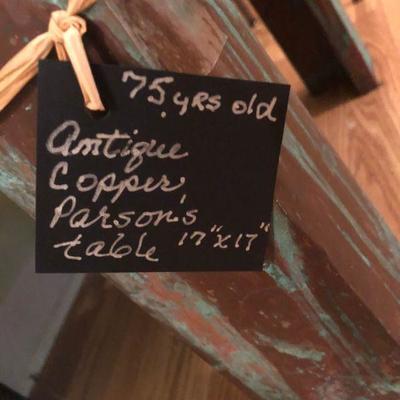 75 yrs old
Antique
Copper,
Parson's
table 17"x17"